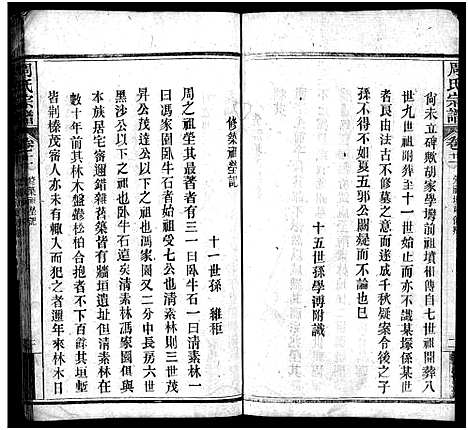 周氏宗譜
卷十二
尙未立碑歟胡家學墳前祖墳相傳自七世祖開葬八
世九世祖葬此再葬至十一世始止亦不識某塚係某世
祖或者古不修墓之意而遂成千秋疑案令後之子
孫不得不以夏五郭公闕疑而不論也巳
十五世孫學溥附識
修築祖塋記
十一世孫 維秬
周之祖塋其最著者有三一曰臥牛石一曰淸素林一
曰馮家園臥牛石者始祖受七公也淸素林則三世茂
昇公茂達公以下之祖也馮家園又二分中長房六世
黑沙公以下之祖也臥牛石遠矣淸素林馮家園俱與
本族居宅甯邇錯雜舊築皆有牆垣遺址但淸素林
數十年前其林木盤鬱松柏合抱不下百餘其垣塹
皆荆榛茂密人亦未有輙入而犯之者邇年來林木日
周氏宗譜
卷十二